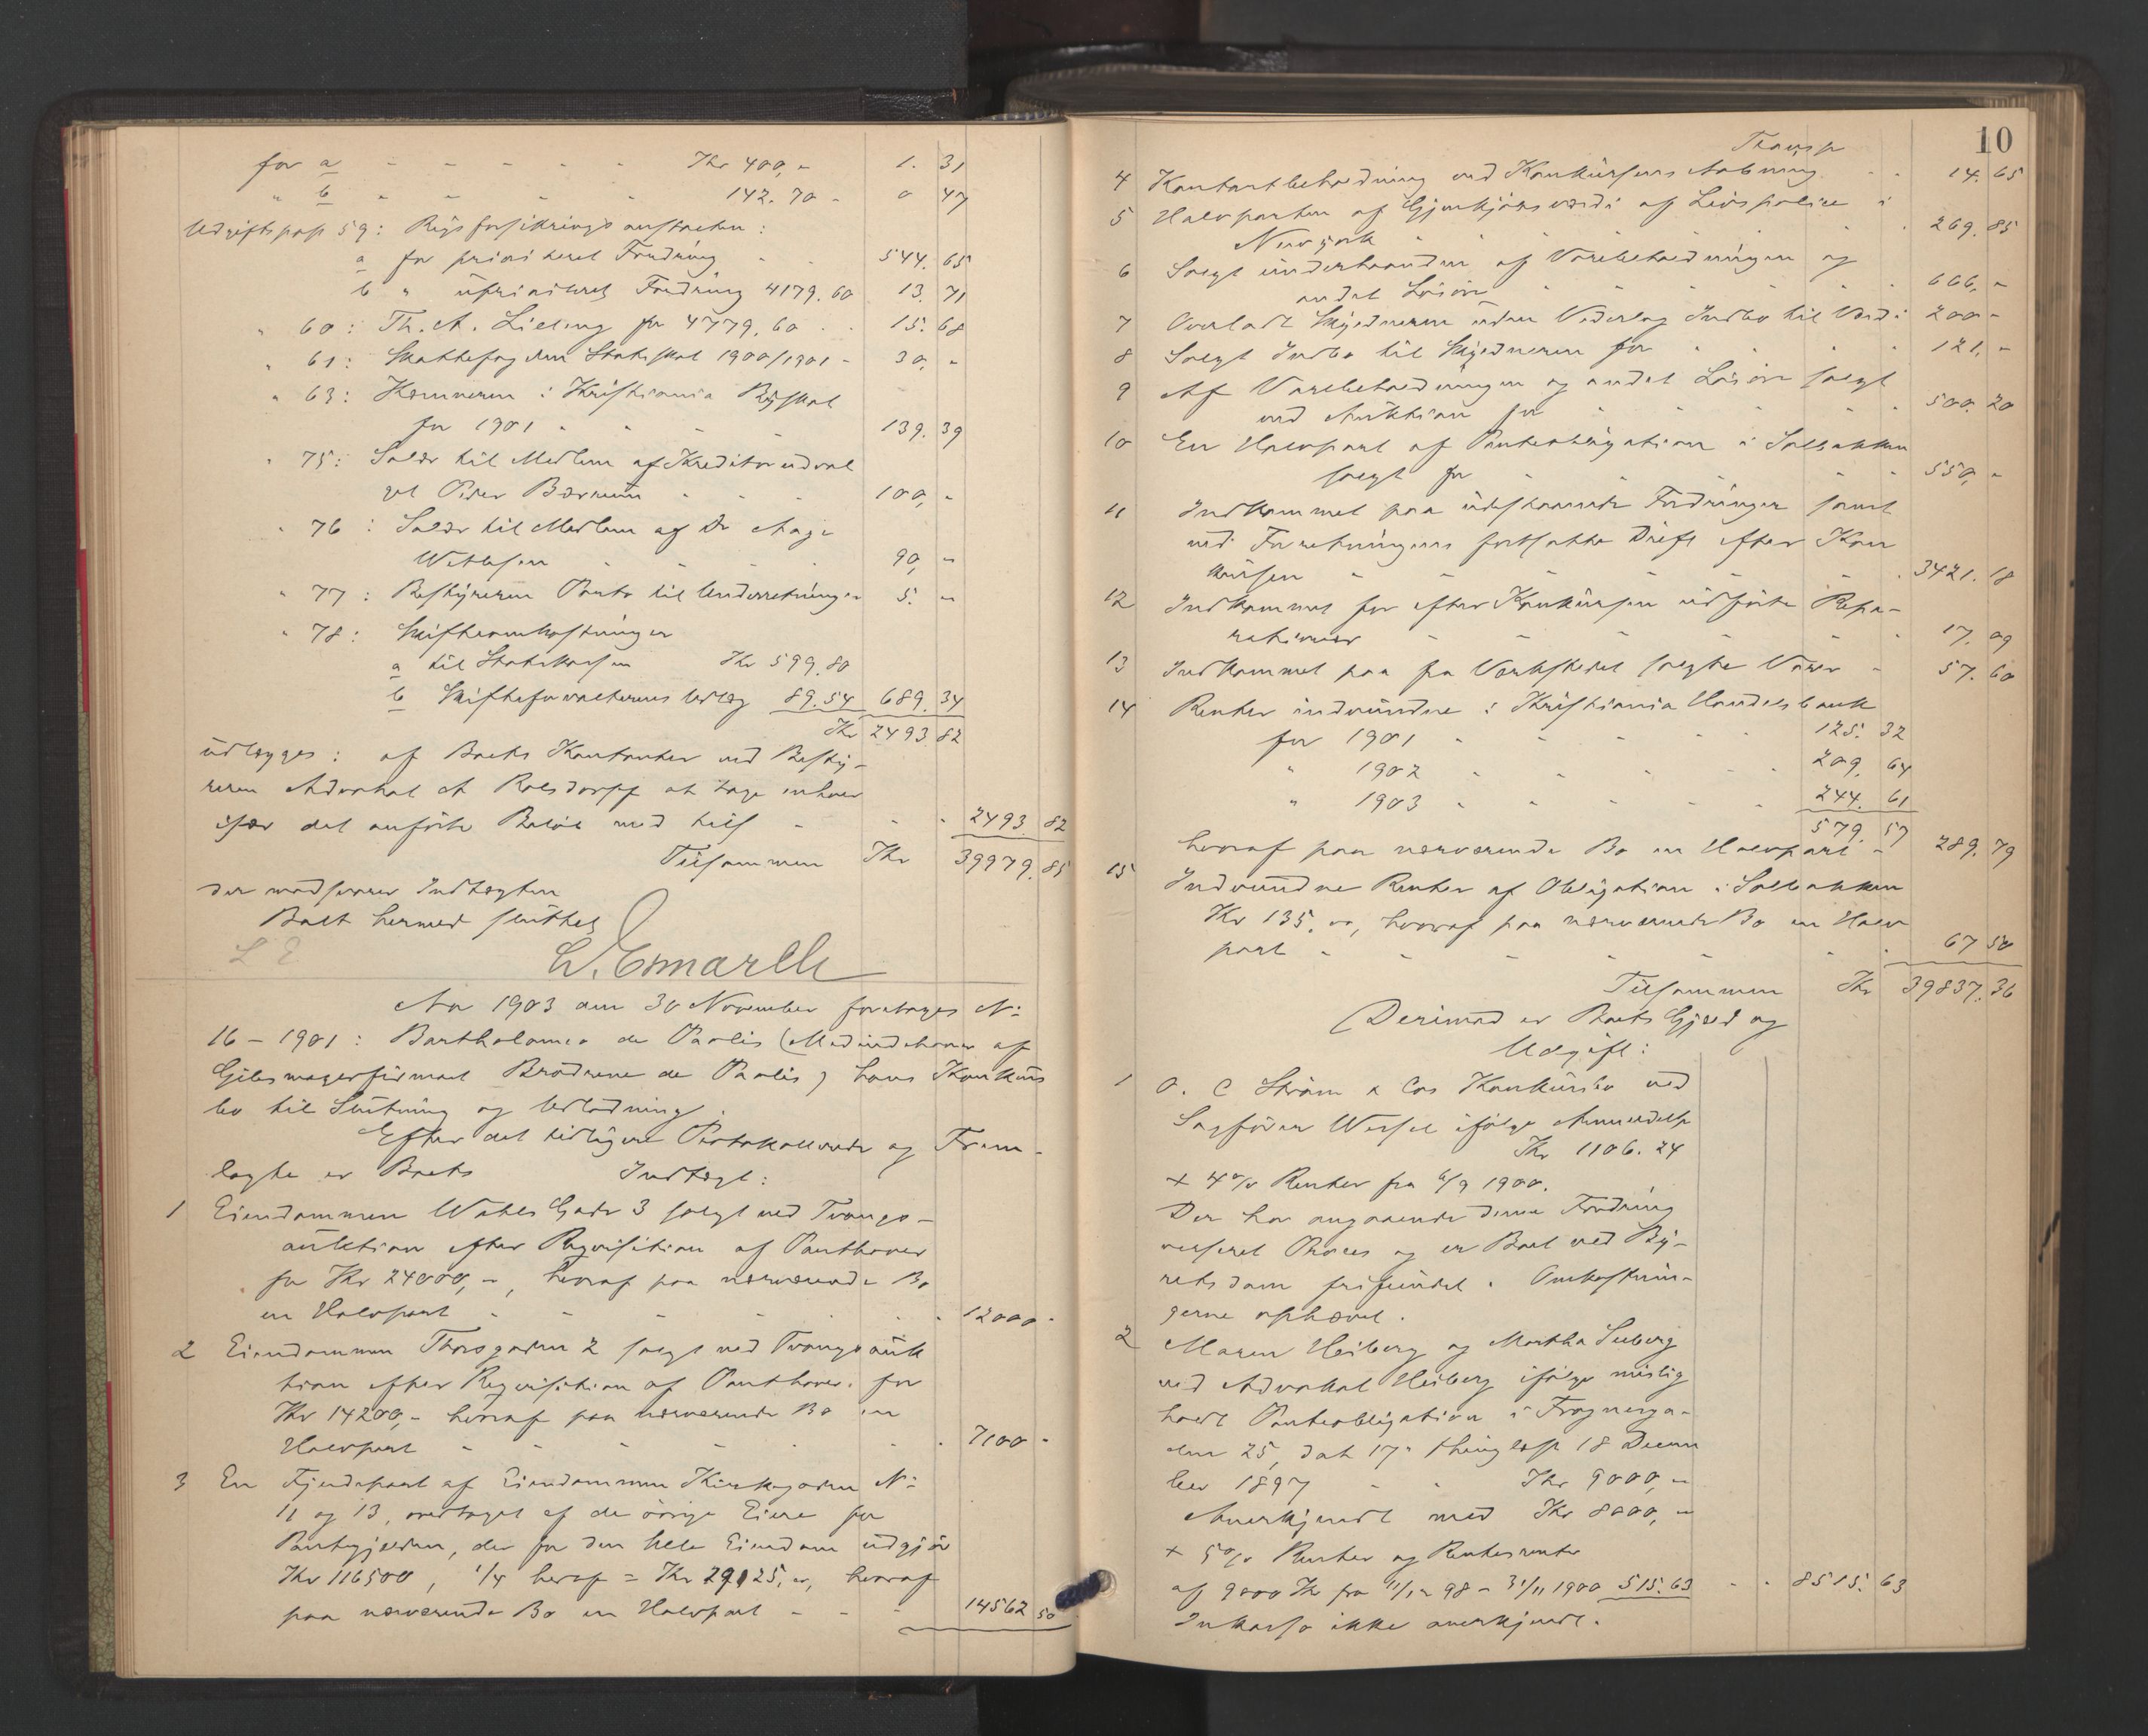 for a - - - - - Kr 400,- 1. 31
" b - - - - - 142.70 - 0 47
Udgiftspost 59: Rigsforsikringsanstalten:
a for prioriteret Fordring - - 544. 65
b " uprioriteret Fordring 4179.60 13. 71
" 60: Th. A. for 4779.60 - - 15. 68
" 61: Skattefogden Statsskat 1900/1901 - 30. -
" 63: Kæmneren i Kristiania Byskat
for 1901 - - - - 139. 39
" 75: Salær til Medlem af Kreditorudval
get Peder Bærnum - - - 100, -
" 76: Salær til Medlem af Do Aage
Wetlesen - - - - 90, -
" 77: Bestyreren Porto til Underretninger 5. -
" 78: Skifteomkostninger
a til Statskassen Kr 599.80
b Skifteforvalterens Udlæg 89.54 689. 34
Kr 2493. 82
udlægges: af Boets Kontanter ved Besty-
reren Advokat A Rolsdorff at tage enhver
især det anførte Beløb med tils - - - 2493. 82
Tilsammen Kr 39979. 85
der modsvarer Indtægten
Boet hermed sluttet
L E L. Esmarch
Aar 1903 den 30 November foretoges No
16 - 1901: Bartholomeo de Paolis (Medindehaver af
Gibsmagerfirmaet Brødrene de Paolis) hans Konkurs
bo til Slutning og Udlodning.
Efter det tidligere Protokollerede og Frem-
lagte er Boets Indtægt:
1 Eiendommen Wahls Gade 3 solgt ved Tvangs-
auktion efter Reqvisition af Panthaver
for Kr 24000,-, hvoraf paa nærværende Bo
en Halvpart - - - - - - 12000 -
2 Eiendommen Thorsgaden 2 solgt ved Tvangsauk
tion efter Reqvisition af Panthaver for
Kr 14200,- hvoraf paa nærværende Bo en
Halvpart - - - - - - 7100 -
3 En Fjerdepart af Eiendommen Kirkegaden No
11 og 13, overtaget af de øvrige Eiere for
Pantegjælden, der for den hele Eiendom udgjør
Kr 116500, 1/4 heraf = Kr 29125, -, hvoraf
paa nærværende Bo en Halvpart - - - 14562 50
10
Transp
4 Kontantbeholdning ved Konkursens Aabning - - 14. 65
5 Halvparten af Gjenkjøbsværdi af Livspolice i
New york - - - - - - 269. 85
6 Solgt underhaanden af Varebeholdningen og
andet Løsøre - - - - - 666, -
7 Overladt Skyldneren uden Vederlag Indbo til Værdi 200 -
8 Solgt Indbo til Skyldneren for - - - - 121, -
9 Af Varebeholdningen og andet Løsøre solgt
ved Auktion for - - - - - 500. 20
10 En Halvpart af Panteobligation i Solbakken
solgt for - - - - - 550, -
11 Indkommet paa udestaaende Fordringer samt
ved Forretningens fortsatte Drift efter Kon
kursen - - - - - - 3421. 18
12 Indkommet for efter Konkursen udførte Repa-
rationer - - - - - - 17. 09
13 Indkommet paa fra Værkstedet solgte Varer - 57. 60
14 Renter indvundne i Kristiania Handelsbank
for 1901 - - - - - 125. 32
" 1902 - - - - - 209. 64
" 1903 - - - - - 244. 61
579. 57
hvoraf paa nærværende Bo en Halvpart - 289. 79
15 Indvundne Renter af Obligation i Solbakken
Kr 135. -, hvoraf paa nærværende Bo en Halv
part - - - - - - 67 50
Tilsammen Kr 39837. 36
Derimod er Boets Gjæld og
Udgift:
1 O. C Strøm & Cos Konkursbo ved
Sagfører Wessel ifølge Anmeldelse
Kr 1106. 24
+ 4% Renter fra 6/9 1900.
Der har angaaende denne Fordring
verseret Proces og er Boet ved By-
retsdom frifundet. Omkostnin-
gerne ophævet.
2 Maren Heiberg og Martha Seeberg
ved Advokat Heiberg ifølge mislig
holdt Panteobligation i Frognerga-
den 25, dat 17" thinglæst 18 Decem
ber 1897 - - Kr 9000, -
Anerkjendt med Kr 8000, -
+ 5% Renter og Rentesrenter
af 9000 Kr fra 11/12 98 - 31/11 1900 515. 63 - - 8515. 63
Inkasso ikke anerkjendt.